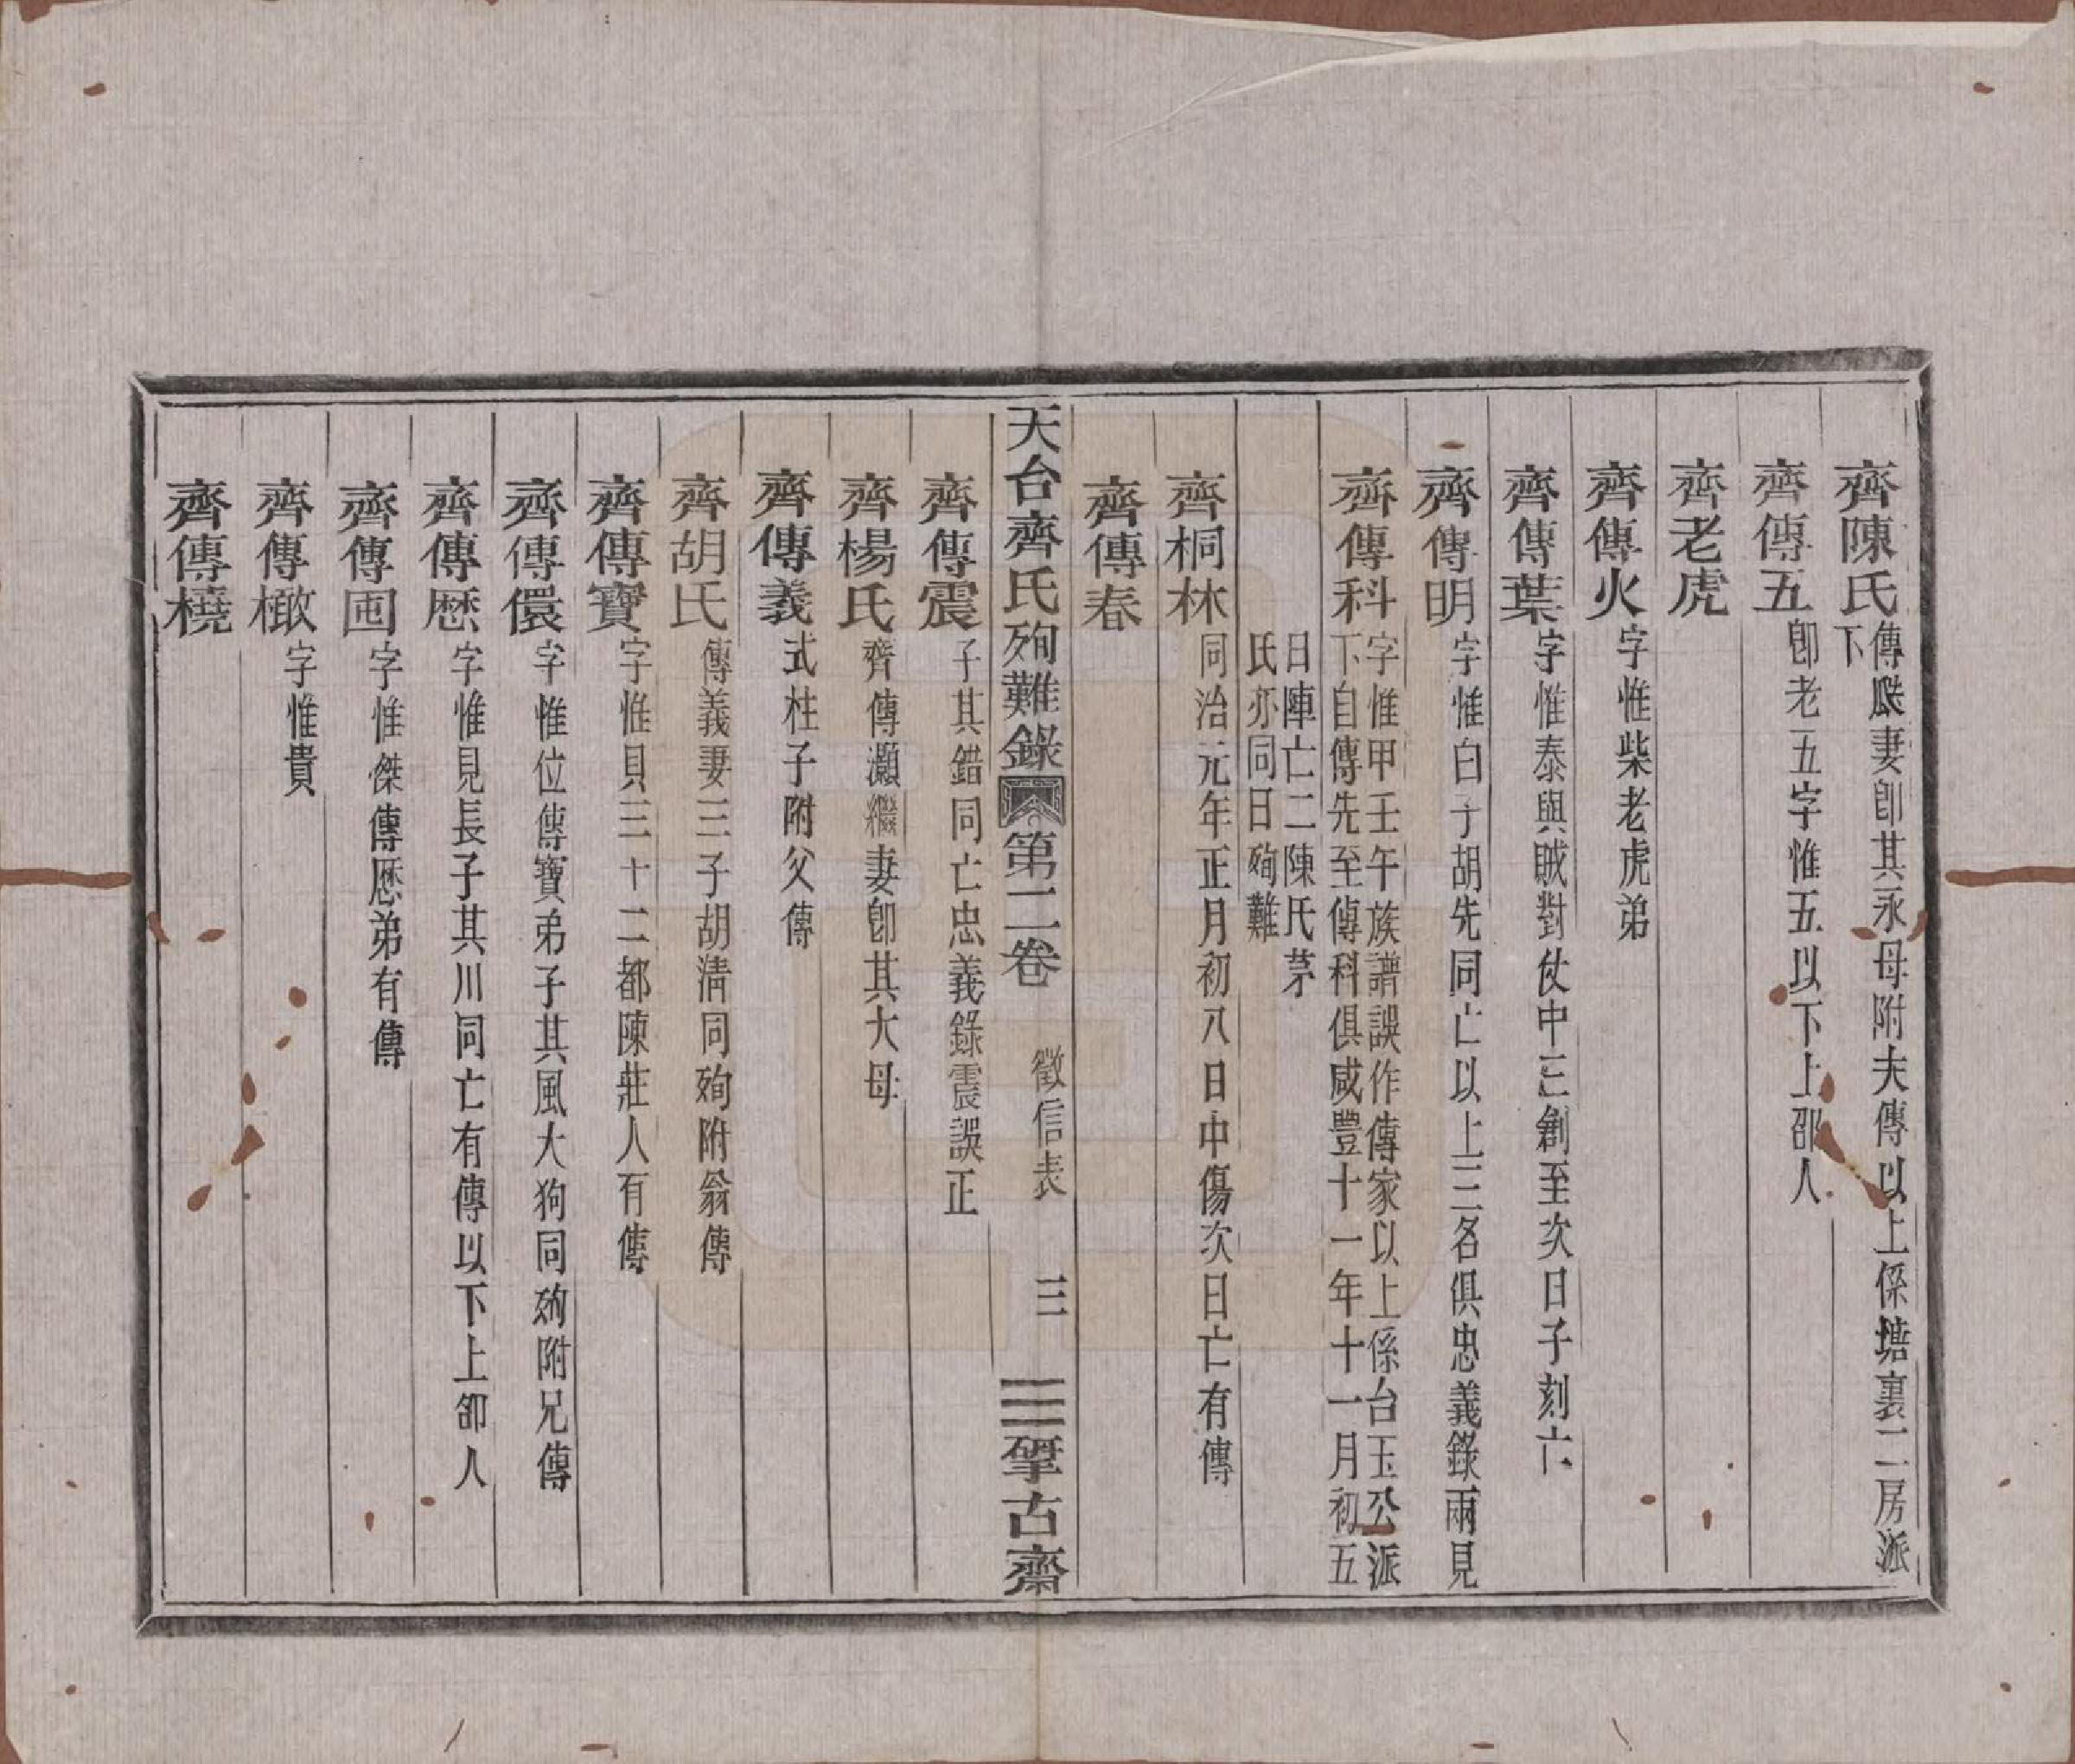 齊陳氏傳慶妻卽其永母附夫傳以上係塘裏二房派下
齊傳五卽老五字惟五以下上邵人
齊老虎
齊傳火字惟柴老虎弟
齊傳葉字惟泰與賊對仗中三創至次日子刻亡
齊傳明字惟白子胡先同亡以上三名俱忠義錄兩見
齊傳科字惟甲壬午族譜誤作傳家以上係台玉公派
下自傳先至傳科俱咸豐十一年十一月初五
日陣亡二陳氏茅
氏亦同日殉難
齊桐林同治元年正月初八日中傷次日亡有傳
齊傳春
天台齊氏殉難錄 第二卷 徵信表 三 揅古齋
齊傳震子其錯同亡忠義錄震誤正
齊楊氏齊傳灝繼妻卽其大母
齊傳義式柱子附父傳
齊胡氏傳義妻三子胡淸同殉附翁傳
齊傳寶字惟貝三十二都陳莊人有傳
齊傳儇字惟位傳寶弟子其風大狗同殉附兄傳
齊傳歷字惟見長子其川同亡有傳以下上邵人
齊傳囿字惟傑傳歷弟有傳
齊傳橄字惟貴
齊傳橈